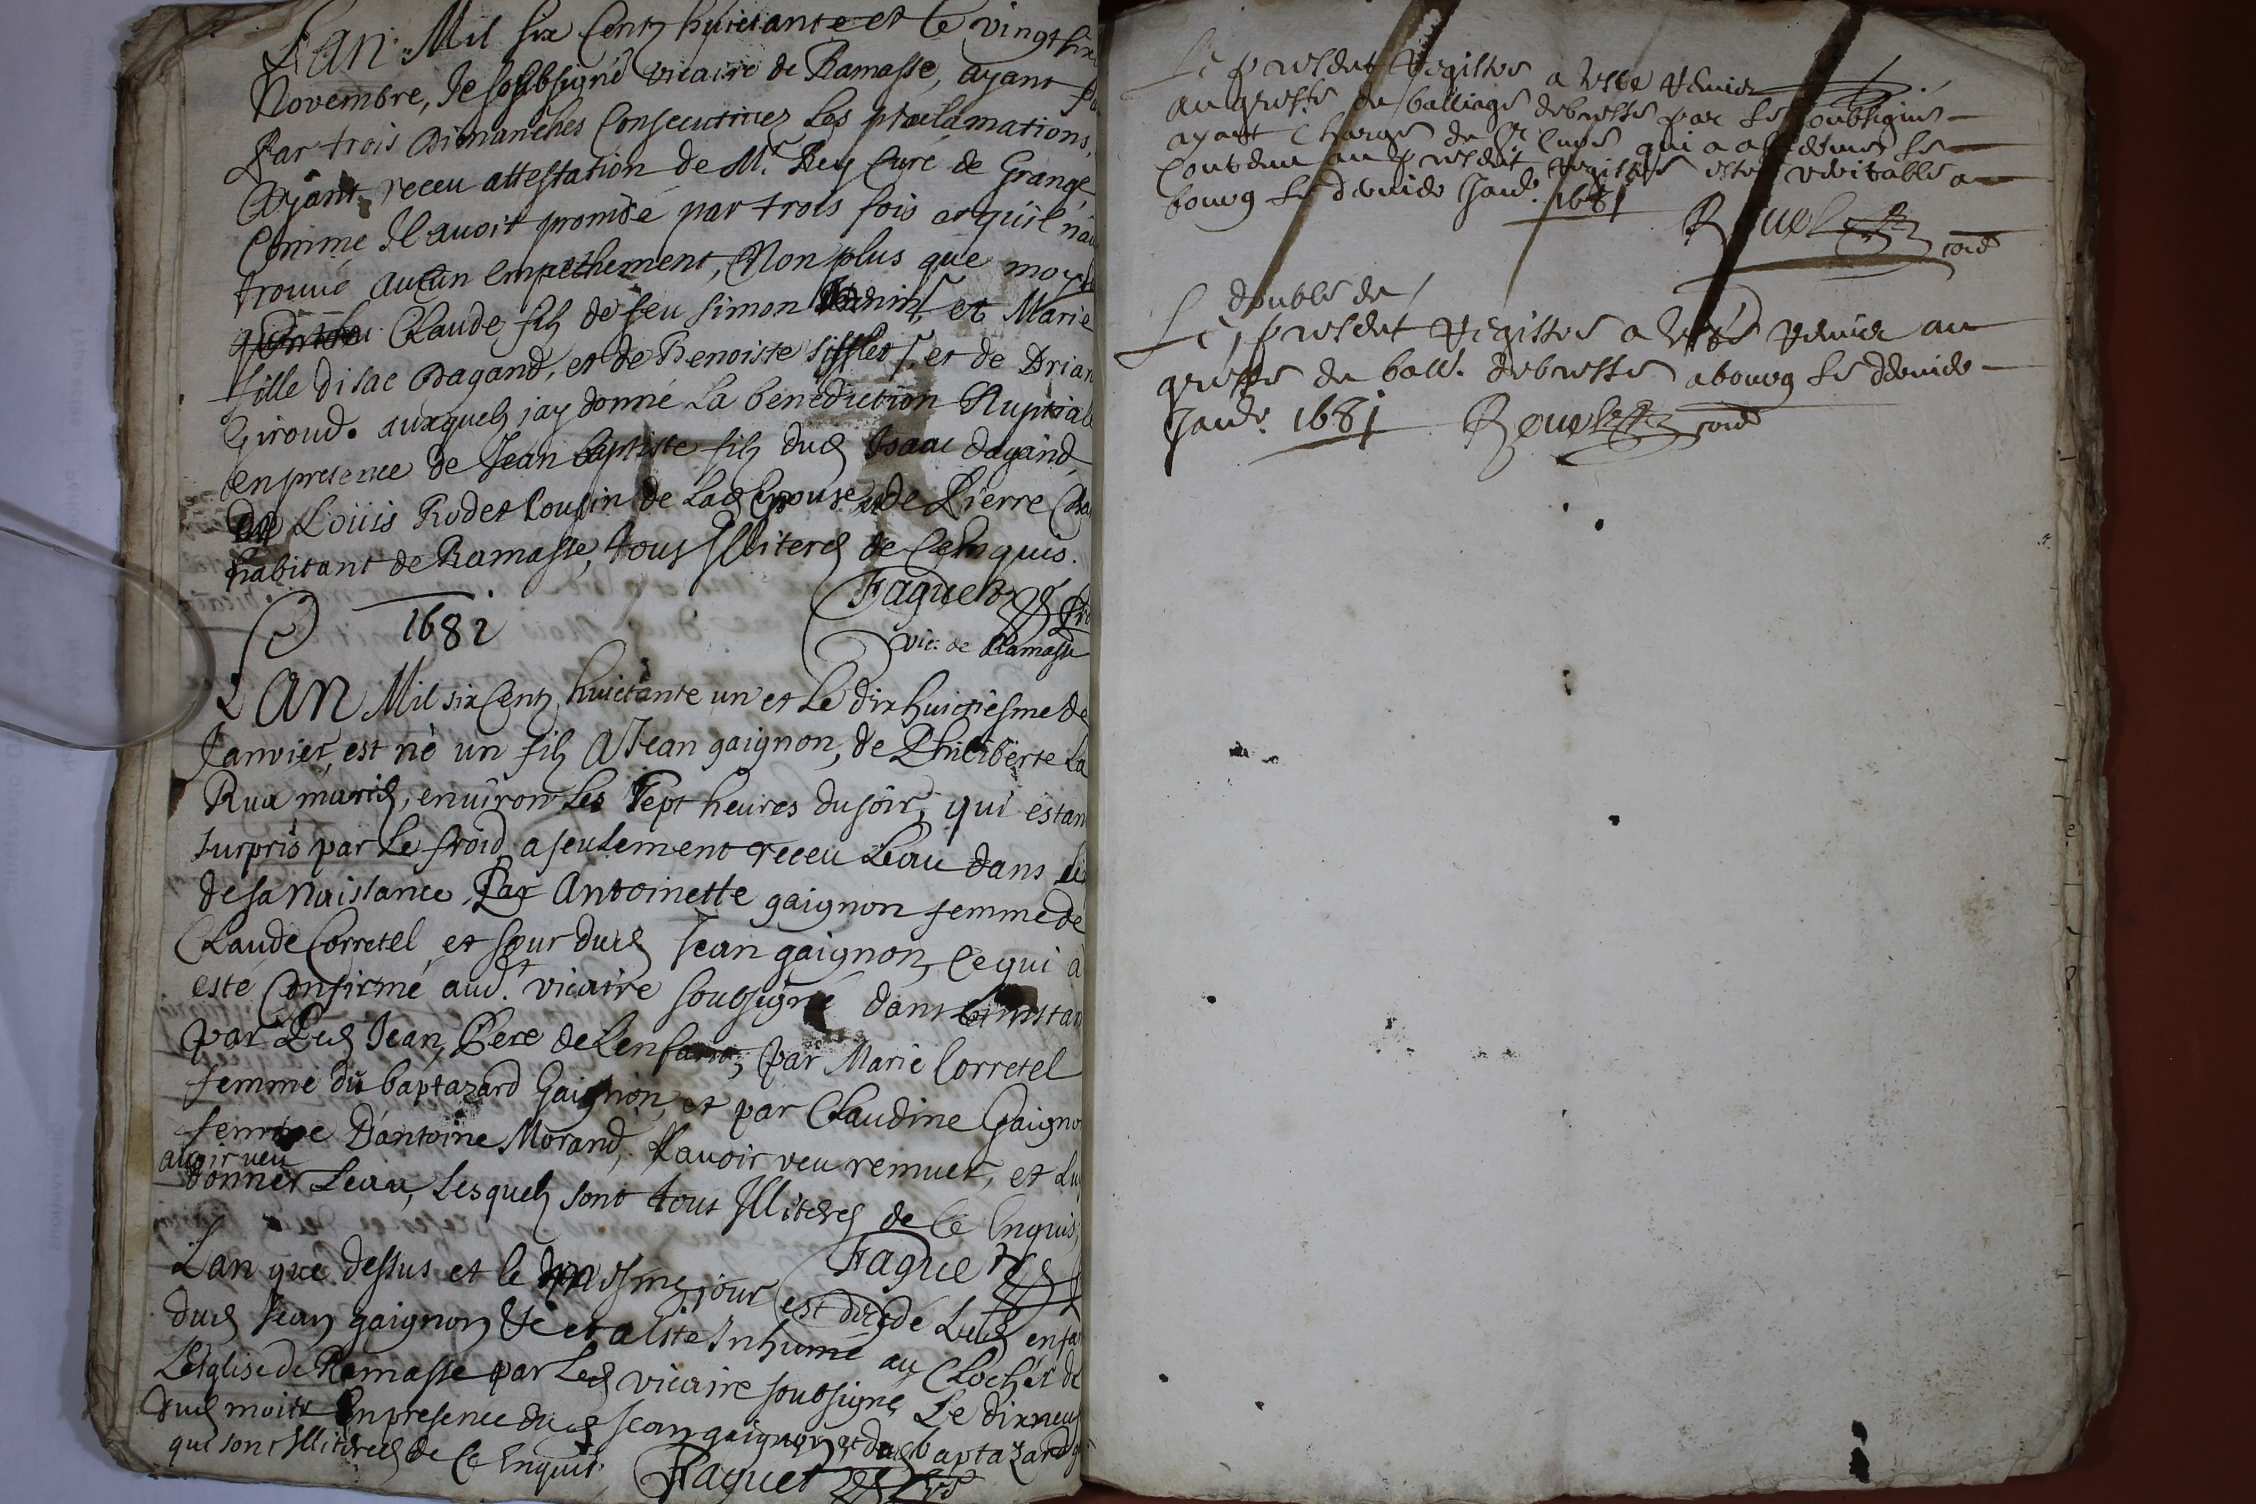 Lan Mil six Cents huictante et le vingt six
Novembre, Je soubsigné vicaire de Ramasse, ayant
Par trois Dimanches Consecutives Les proclamations,
Ayant receu attestation de Mr. Rey Curé de Grange
Comme Il auoit promisé par trois fois et qu'il n'a
trouué aucun empechement, Non plus que moy
Claude filz de feu Simon et Marie
fille d'isac Dagand, et de Benoiste et de
Giroud. auxquels jay donné La benediction Nuptial
en presence de Jean baptiste filz dud Isaac dagand,
de Louis Rudet Cousin de Lad Epouse et de Pierre
habitant de Ramasse, tous Illiteres de Ce enquis.
Faguet
vic: de Ramasse
1681
LAN Mil six Cents huictante un et Le dix huictiesme de
Janvier, est né un filz A Jean gaignon, de Philiberte La
Rua mariés, enuiron Les Sept heures du soir, qui estan
surpris par Le froid a seulement receu Leau dans
de sa Naissance, Par Antoinette gaignon femme de
Claude Corretel et sœur dud Jean gaignon, Ce qui a
esté Confirmé aud. vicaire soubsigné dans Linstan
par Led Jean, Pere de Lenfant, par Marie Corretel
femme du baptazard Gaignon, et par Claudine Gaigno
femme D'antoine Morand, Lauoir veu remuer, et Luy
auoir veu
donner Leau, Lesquels sont tous Illiteres de Ce Enquis,
Faguet
Lan que dessus et le mesme jour est decedé Led enfan
dud Jean gaignon &c et a esté Inhumé au Clocher de
L'eglise de Ramasse par Led vicaire soubsigné, Le dixneuf
dud mois En presence dud Jean gaignon et dud baptazard
qui sont Illiteres de Ce Enquis,
Faguet
Le present Registre a esté Remis
au greffe du balliage debresse par Le soubsigné
ayant Charge du Sr Curé qui a affirmé Le
Contenu au present Registre estre veritable a
bourg Le dernier Janr. 1681
Le double du
present Registre a esté Remis au
greffe du ball. debresse a bourg Le dernier
Janr. 1681